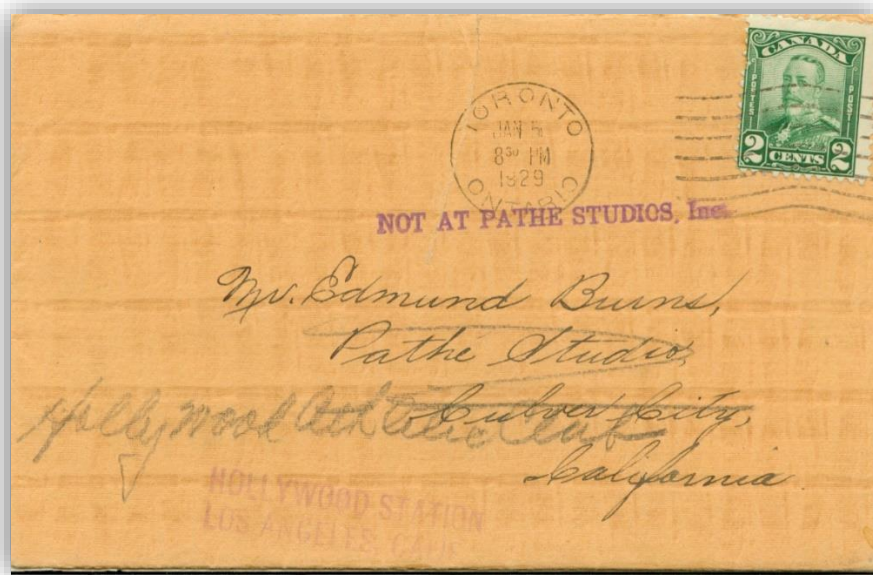 CANADA
POSTES
POST
2 CENTS 2
TORONTO
JAN
8³⁰ PM
1929
ONTARIO
NOT AT PATHE STUDIOS, Inc.
Mr. Edmund Burns,
Pathé Studio,
Culver City,
Hollywood Athletic Club
California
HOLLYWOOD STATION
LOS ANGELES, CALIF.